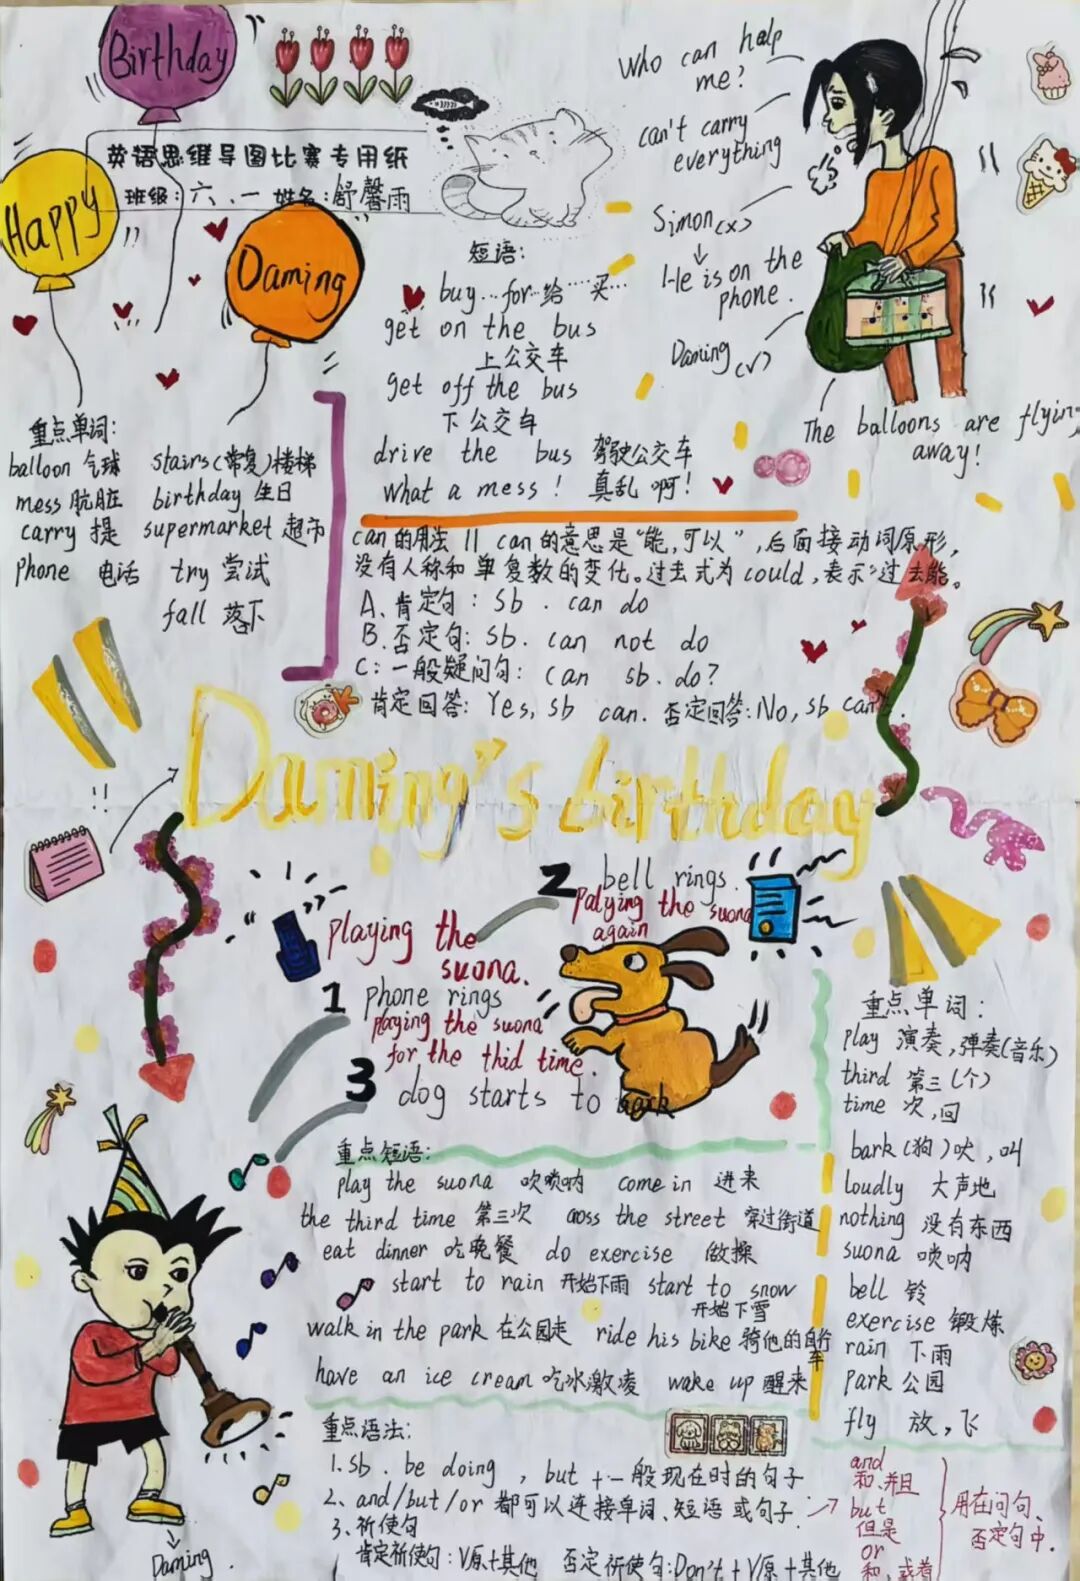 Birthday
Happy
Daming
英语思维导图比赛专用纸
班级:六、一 姓名:舒馨雨
Who can help
me?
can't carry
everything
Simon(×)
↓
He is on the
phone.
Daming(√)
The balloons are flying
away!
短语:
buy…for…给…买…
get on the bus
上公交车
get off the bus
下公交车
drive the bus 驾驶公交车
What a mess! 真乱啊!
重点单词:
balloon 气球 stairs(常复)楼梯
mess 肮脏 birthday 生日
carry 提 supermarket 超市
phone 电话 try 尝试
fall 落下
can的用法 || can的意思是"能,可以",后面接动词原形,
没有人称和单复数的变化。过去式为could,表示"过去能。
A、肯定句:sb. can do
B、否定句:sb. can not do
C:一般疑问句: can sb. do?
肯定回答: Yes, sb can. 否定回答:No, sb can't.
Daming's birthday
playing the
suona.
1 phone rings
2 bell rings.
palying the suona
again
playing the suona
for the thid time.
3 dog starts to bark
重点短语:
play the suona 吹唢呐 come in 进来
the third time 第三次 cross the street 穿过街道
eat dinner 吃晚餐 do exercise 做操
start to rain 开始下雨 start to snow
开始下雪
walk in the park 在公园走 ride his bike 骑他的自行
车
have an ice cream 吃冰激凌 wake up 醒来
重点单词:
play 演奏,弹奏(音乐)
third 第三(个)
time 次,回
bark(狗)吠,叫
loudly 大声地
nothing 没有东西
suona 唢呐
bell 铃
exercise 锻炼
rain 下雨
park 公园
fly 放,飞
重点语法:
1.sb. be doing , but +一般现在时的句子
2、and/but/or 都可以连接单词、短语或句子.
3、祈使句
肯定祈使句:V原+其他 否定祈使句:Don't+V原+其他
and
和.并且
but
但是
or
和,或者
用在问句、
否定句中.
Daming.